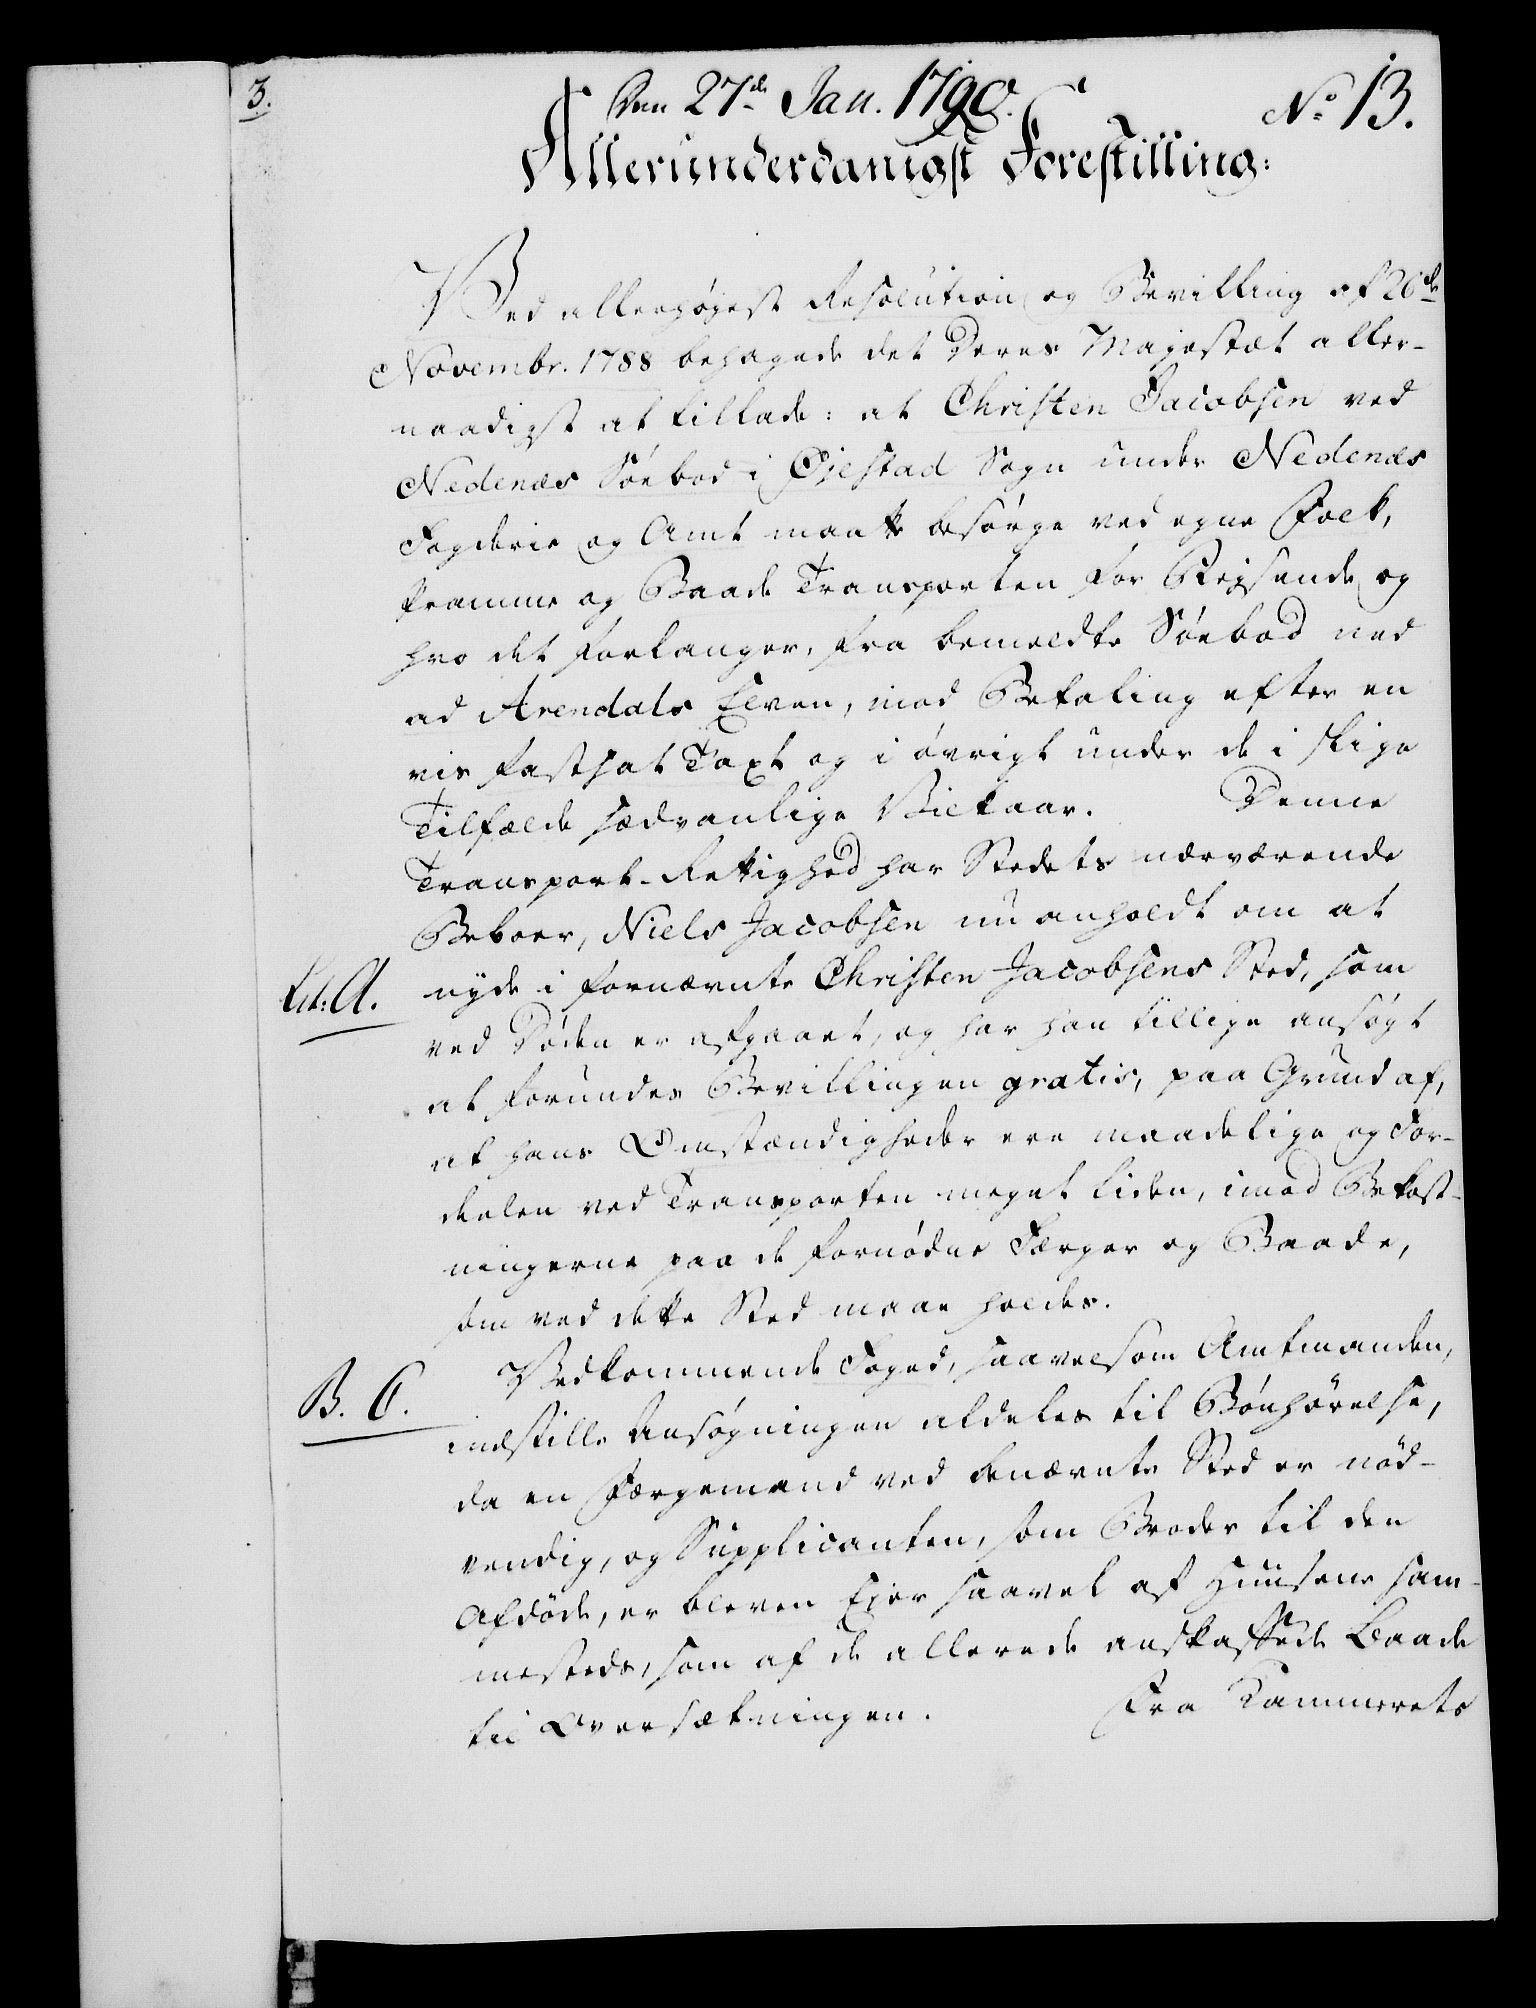 3.
Den 27de Jan. 1790.
No 13.
Allerunderdanigst Forestilling:
Ved allerhøyest Resolution og Bevilling af 26de
Novembr. 1788 behagede det Deres Majestæt aller-
naadigst at tillade: at Christen Jacobsen ved
Nedenæs Söebod i Øjestad Sogn under Nedenæs
Fogderie og Amt maatte besörge ved egne Folk,
Pramme og Baade Transporten for Rejsende og
hvo det forlanger, fra bemeldte Söebod ned
ad Arendals Elven, mod Betaling efter en
vis fastsat Taxt og i övrigt under de i slige
Tilfælde sædvanlige Vilkaar. Denne
Transport-Rettighed har Stedets nærværende
Beboer, Niels Jacobsen nu anholdt om at
Lit: A.
nyde i fornævnte Christen Jacobsens Sted, som
ved Döden er afgaaet, og har han tillige ansögt
at forundes Bevillingen gratis, paa Grund af,
at hans Omstændigheder ere maadelige og For-
delen ved Transporten meget liden, imod Bekost-
ningerne paa de fornödne Færger og Baade,
som ved dette Sted maae holdes.
Vedkommende Foged, saavelsom Amtmanden,
B. C.
indstille Ansögningen aldeles til Bönhörelse,
da en Færgemand ved benævnte Sted er nöd-
vendig, og Supplicanten, som Broder til den
Afdöde, er bleven Ejer saavel af Huusene sam-
mesteds, som af de allerede anskaffede Baade
til Oversætningen. Fra Kammerets